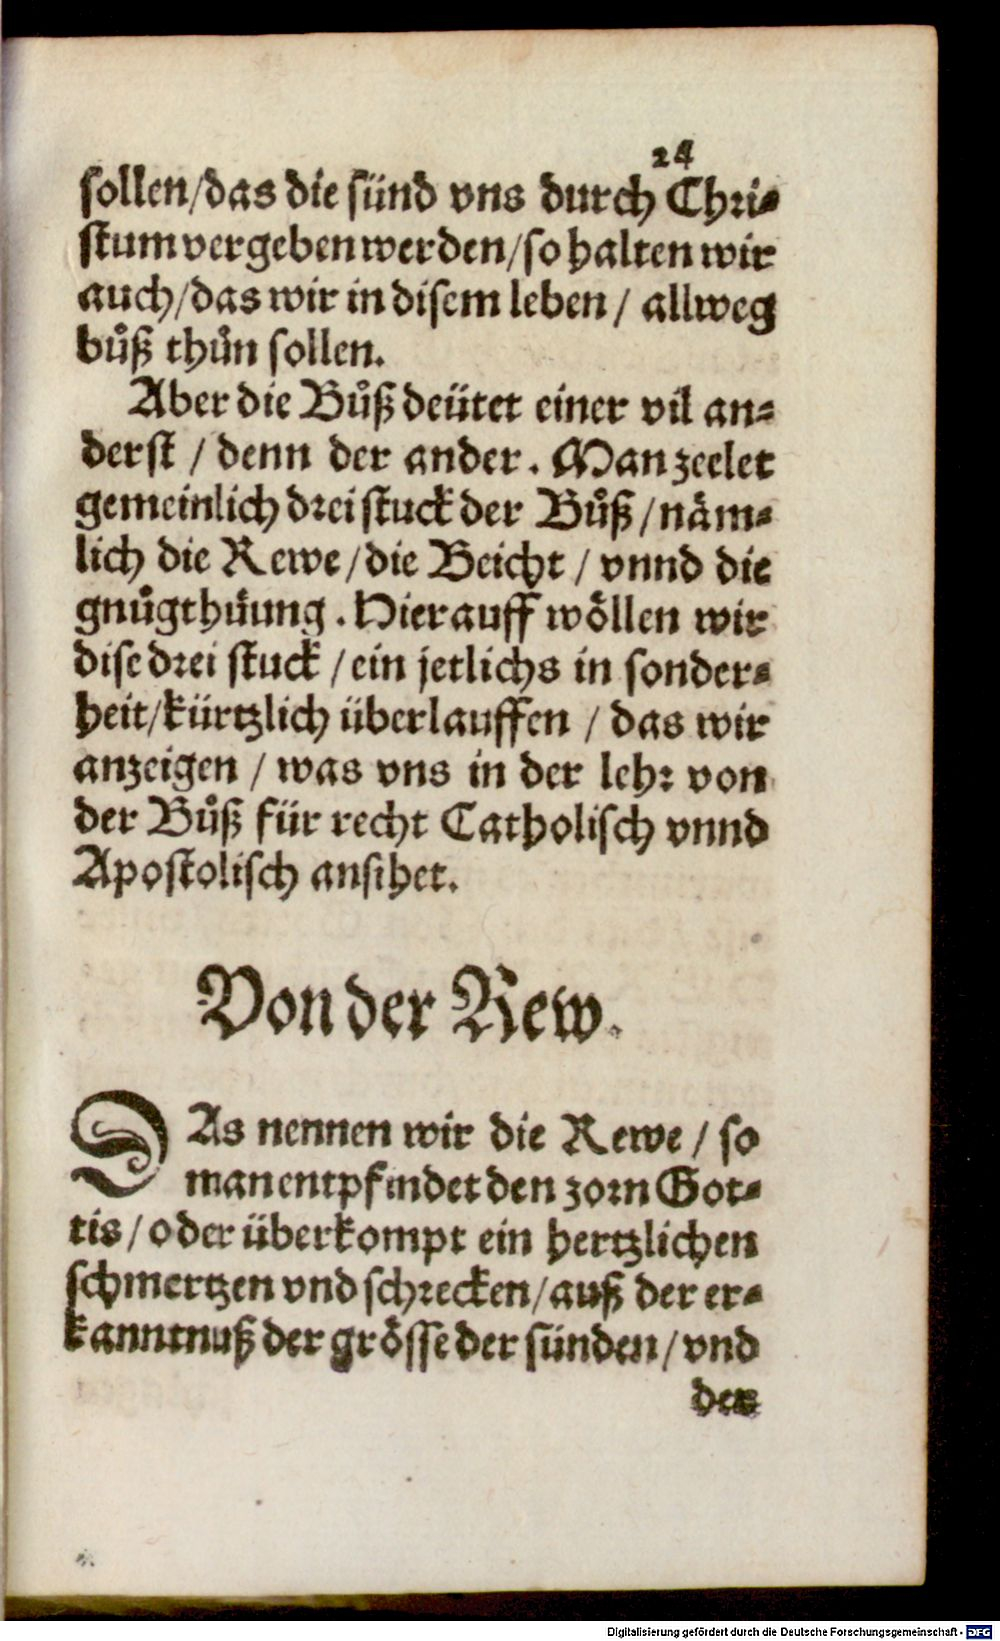 24
sollen/das die sünd vns durch Chri⸗
stum vergeben werden/so halten wir
auch/das wir in disem leben / allweg
bůß thůn sollen.
Aber die Bůß deütet einer vil an⸗
derst / denn der ander. Man zeelet
gemeinlich drei stuck der Bůß/näm⸗
lich die Rewe/die Beicht / vnnd die
gnůgthůung. Hierauff wöllen wir
dise drei stuck / ein jetlichs in sonder⸗
heit/kürtzlich überlauffen / das wir
anzeigen / was vns in der lehr von
der Bůß für recht Catholisch vnnd
Apostolisch ansihet.
Von der Rew.
DAs nennen wir die Rewe / so
man entpfindet den zorn Got⸗
tis/oder überkompt ein hertzlichen
schmertzen vnd schrecken/auß der er⸗
kanntnuß der grösse der sünden/vnd
der
Digitalisierung gefördert durch die Deutsche Forschungsgemeinschaft - DFG